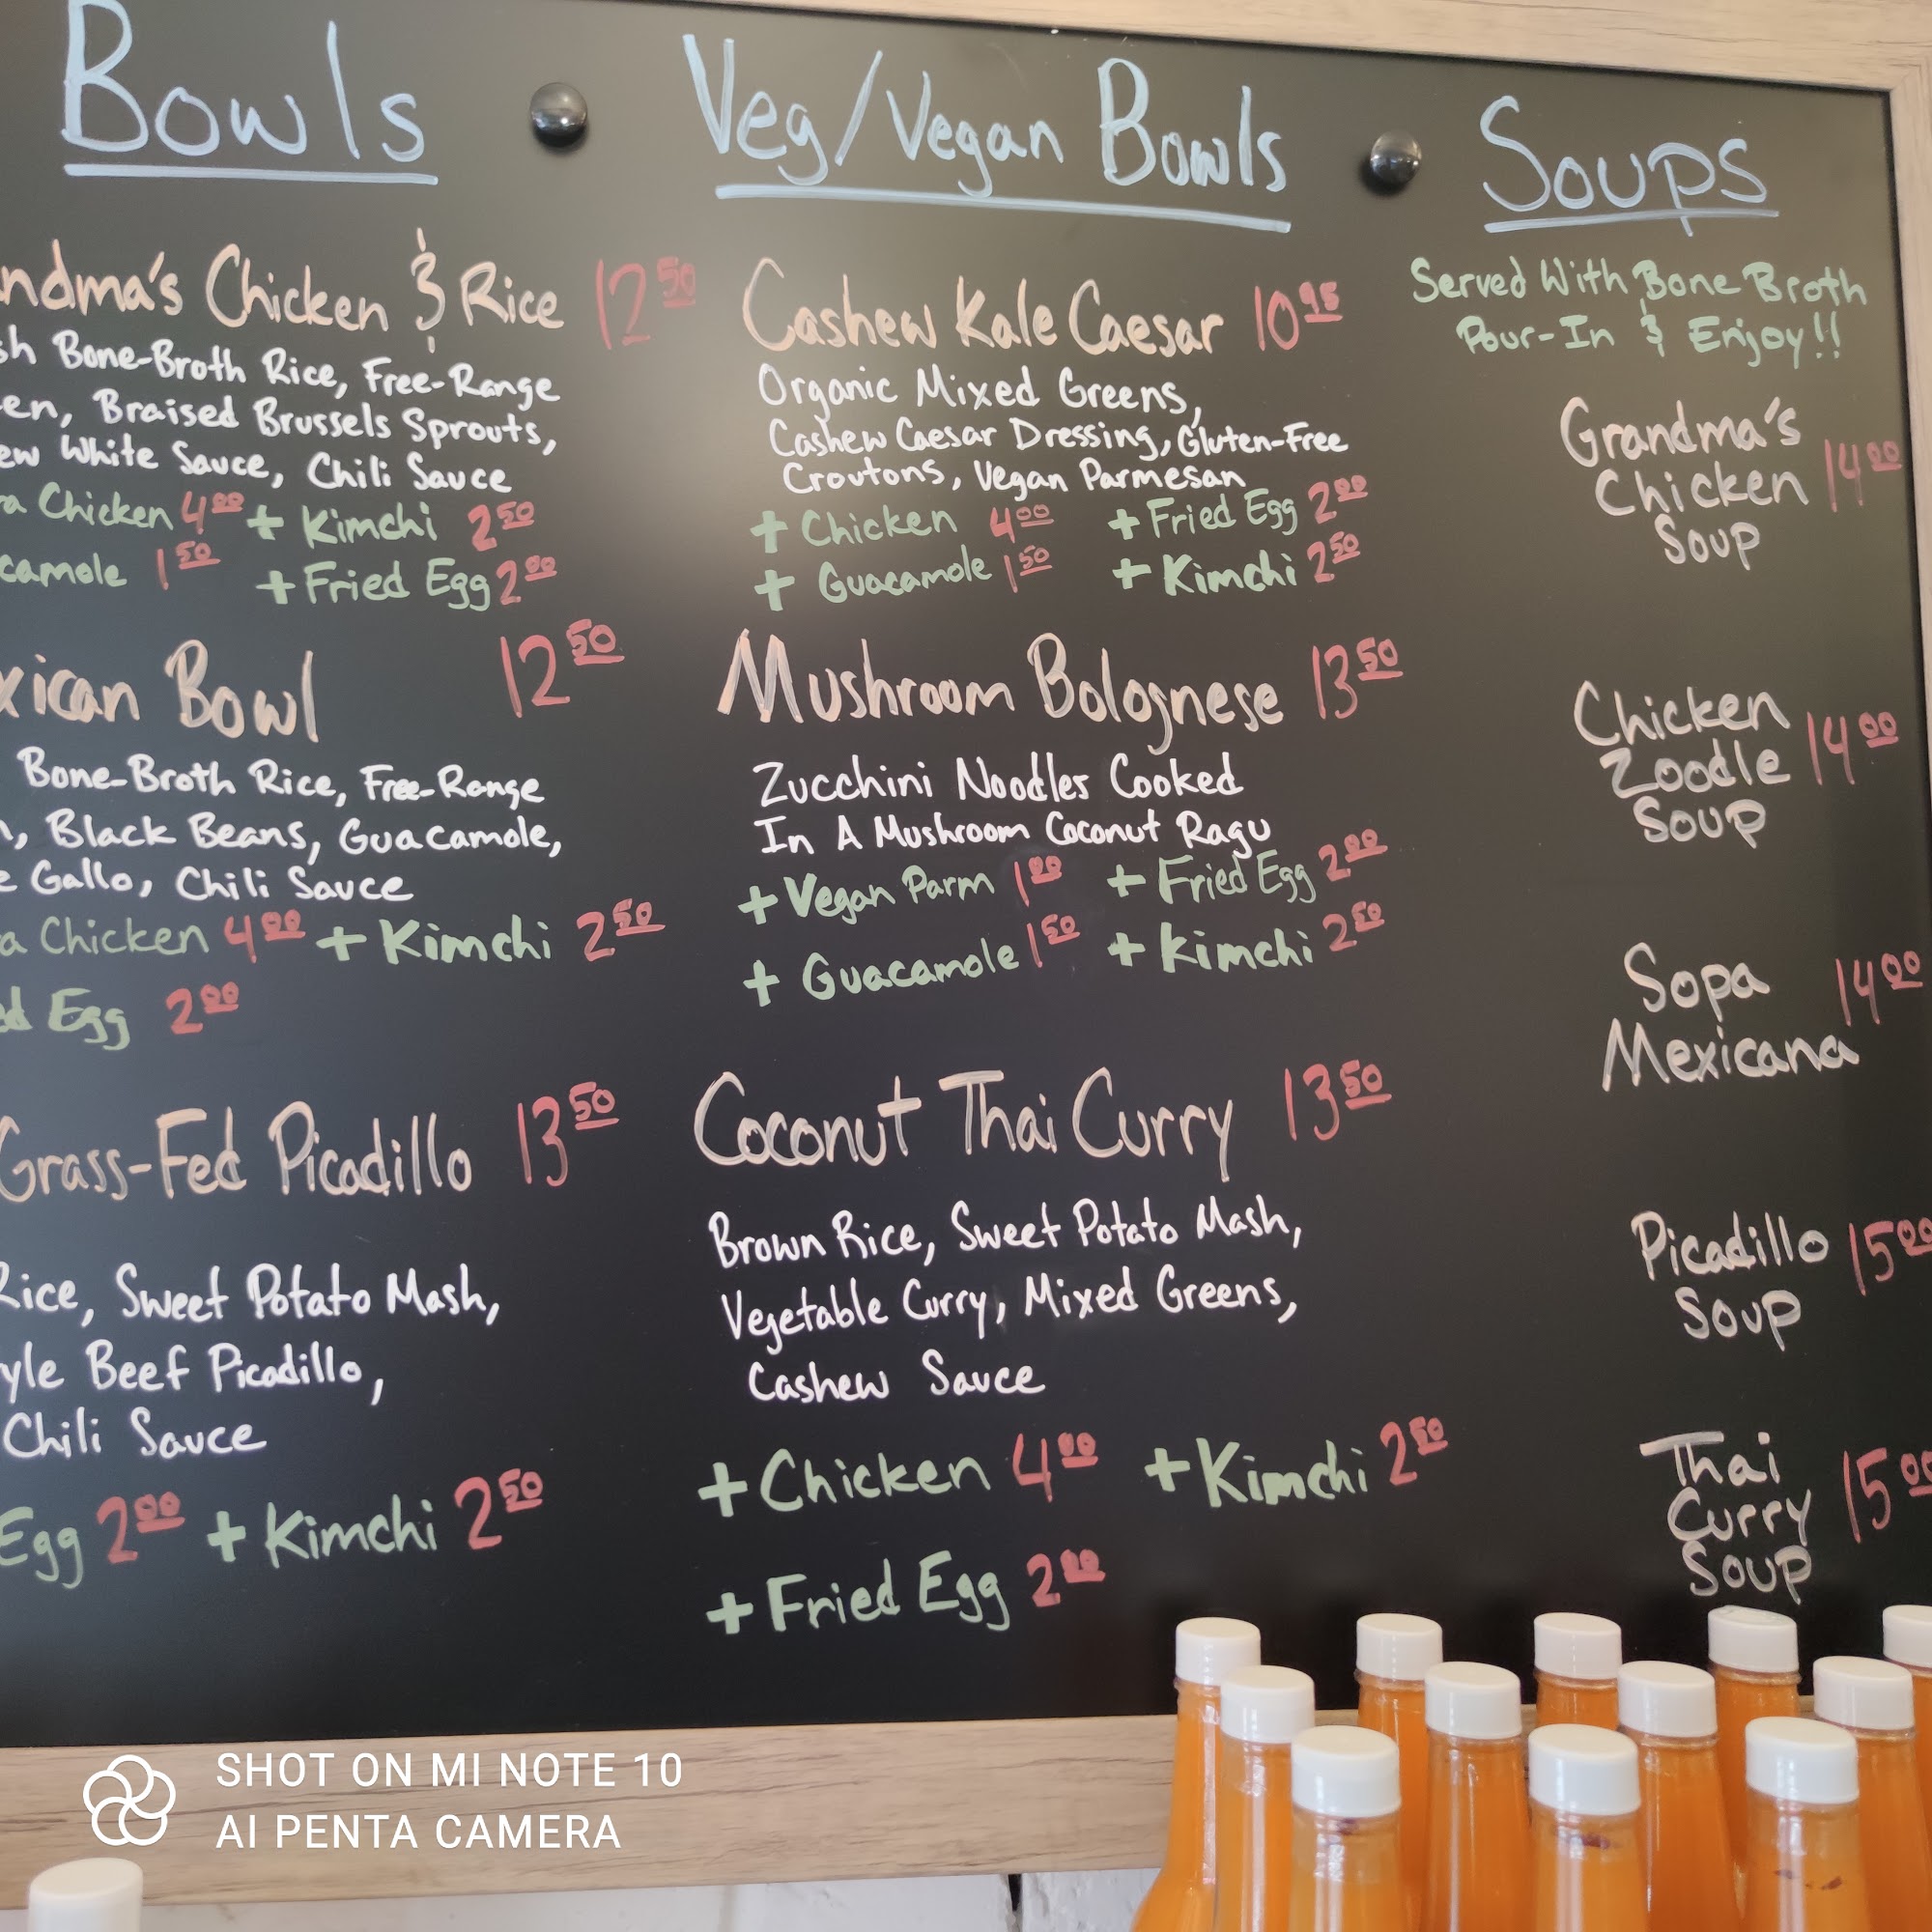 Bowls
ndma's Chicken & Rice 12 50
sh Bone-Broth Rice, Free-Range
en, Braised Brussels Sprouts,
ew White Sauce, Chili Sauce
a Chicken 4 00 + Kimchi 2 50
camole 1 50 + Fried Egg 2 00
xican Bowl 12 50
Bone-Broth Rice, Free-Range
, Black Beans, Guacamole,
e Gallo, Chili Sauce
a Chicken 4 00 + Kimchi 2 50
ed Egg 2 00
Grass-Fed Picadillo 13 50
Rice, Sweet Potato Mash,
yle Beef Picadillo,
Chili Sauce
Egg 2 00 + Kimchi 2 50
Veg/Vegan Bowls
Cashew Kale Caesar 10 95
Organic Mixed Greens,
Cashew Caesar Dressing, Gluten-Free
Croutons, Vegan Parmesan
+ Chicken 4 00 + Fried Egg 2 00
+ Guacamole 1 50 + Kimchi 2 50
Mushroom Bolognese 13 50
Zucchini Noodles Cooked
In A Mushroom Coconut Ragu
+ Vegan Parm 1 00 + Fried Egg 2 00
+ Guacamole 1 50 + Kimchi 2 50
Coconut Thai Curry 13 50
Brown Rice, Sweet Potato Mash,
Vegetable Curry, Mixed Greens,
Cashew Sauce
+ Chicken 4 00 + Kimchi 2 50
+ Fried Egg 2 00
Soups
Served With Bone Broth
Pour-In & Enjoy!!
Grandma's
Chicken 14 00
Soup
Chicken
Zoodle 14 00
Soup
Sopa 14 00
Mexicana
Picadillo 15 00
Soup
Thai
Curry 15 00
Soup
SHOT ON MI NOTE 10
AI PENTA CAMERA